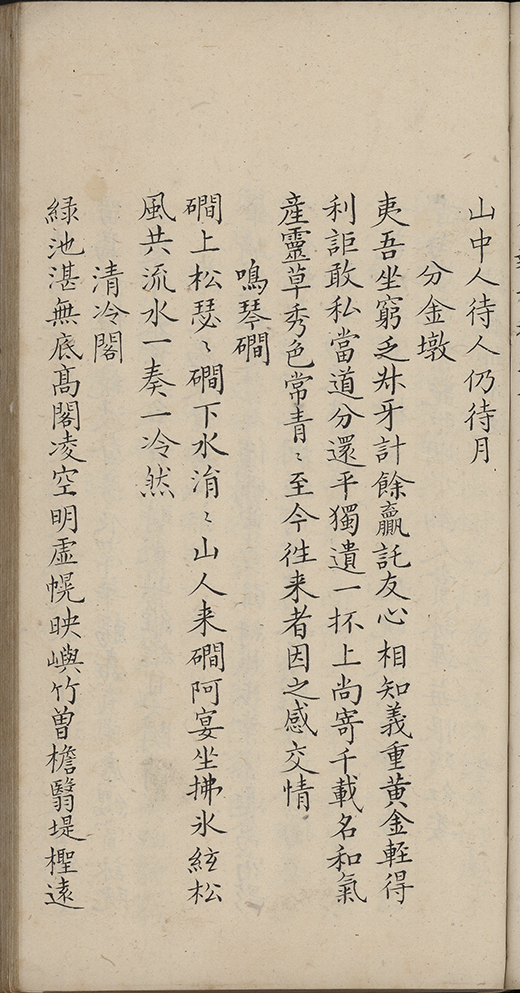 山中人待人仍待月
分金墩
夷吾坐窮乏𠦑牙計餘贏託友心相知義重黄金輊得
利詎敢私當道分還平獨遺一抔上尚寄千載名和氣
産靈草秀色常青〻至今徃来者因之感交情
鳴琴磵
磵上松瑟〻磵下水淯〻山人来磵阿宴坐拂氷絃松
風共流水一奏一冷然
清冷閣
緑池湛無底髙閣凌空明虚幌映嶼竹曽檐翳堤檉遠